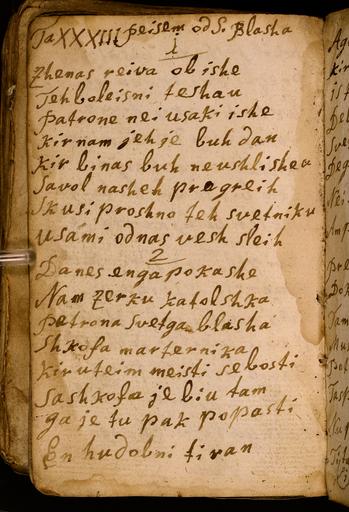 Ta XXXIII peisem od S. Blasha
1
Zhenas reiva ob ishe
Teh boleisni teshau
Patrone nei usaki ishe
kir nam jeh je buh dan
Kir bi nas buh ne ushlishau
Savol nasheh pregreih
Skusi proshno teh svetniku
usami od nas vesh sleih
2
Danes enga pokashe
Nam Zerku katolshka
Petrona svetga blasha
Shkofa marternika
kir uteim meisti sebosti
Sa shkofa je biu tam
ga je tu pak popasti
En hudobni tiran